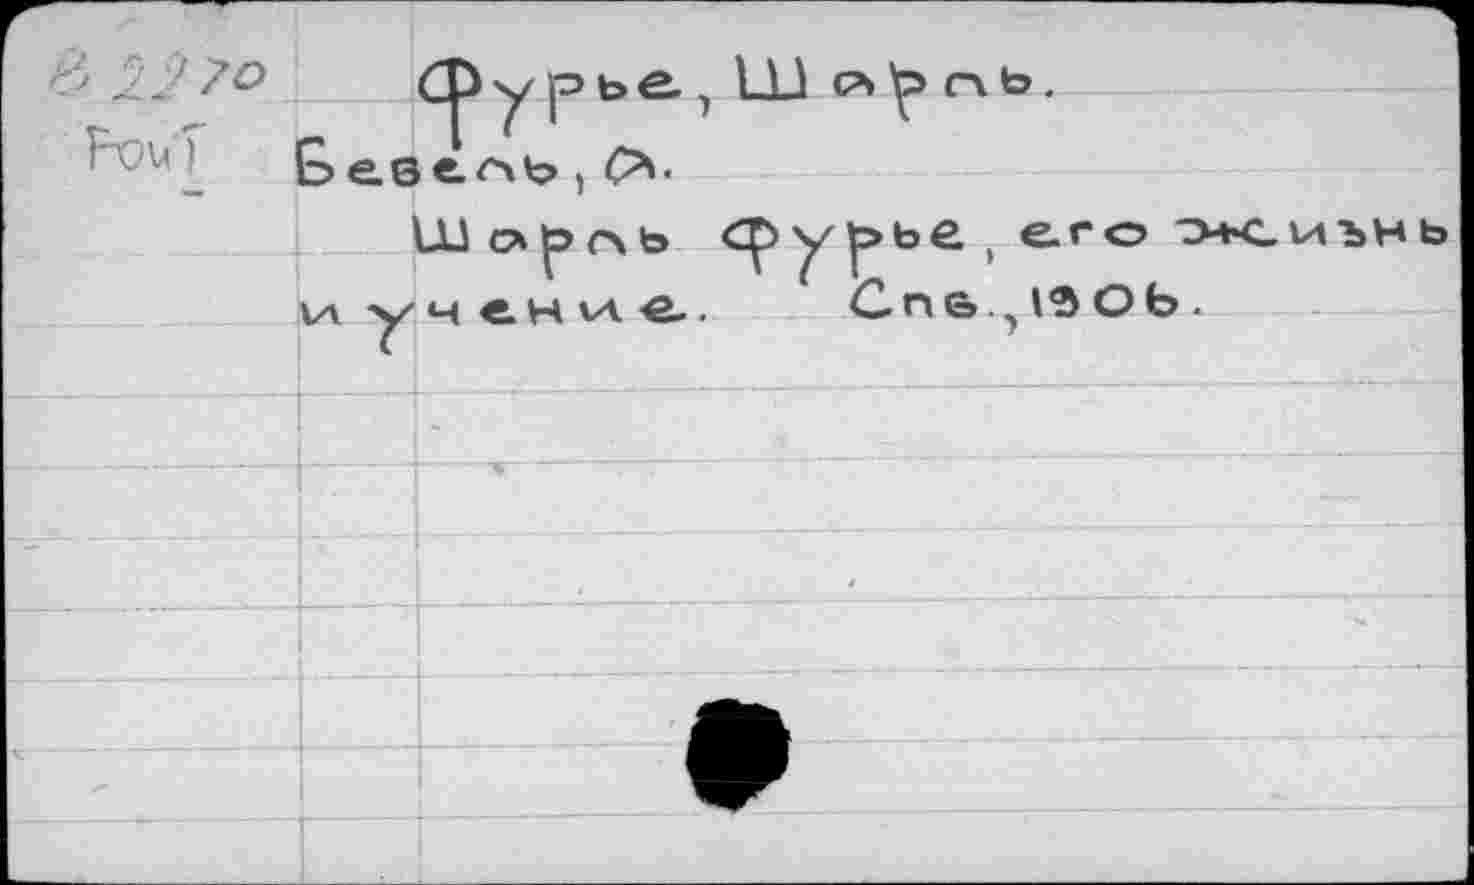 В 2270 Фурье, Шарль.
Бевель, А.
Шарль Фурье, его жизнь
и учение. Спб., 1906.